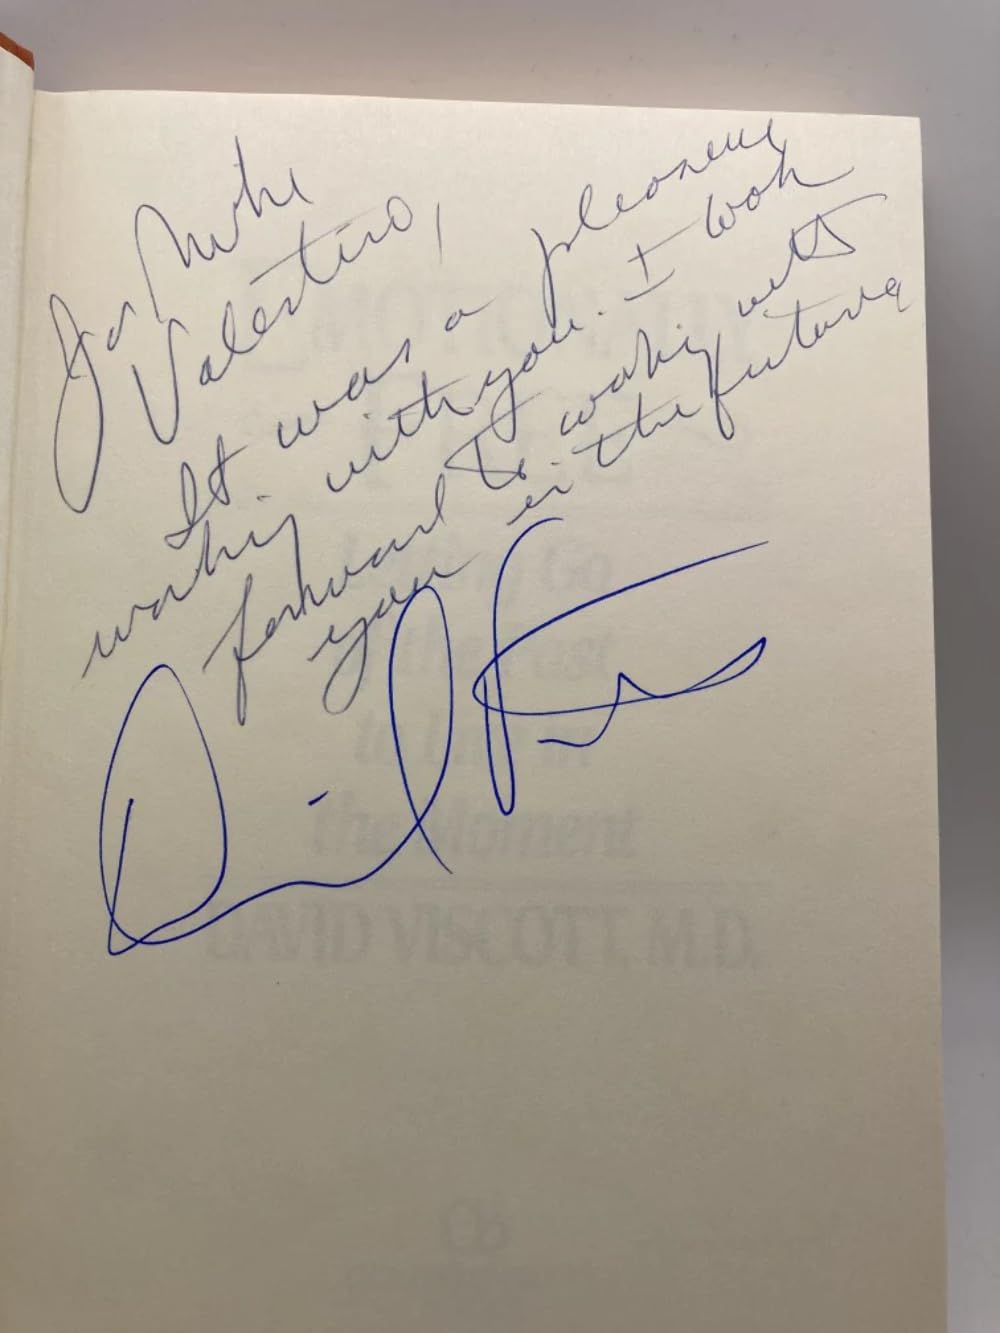 For Mike
Valentino,
It was a pleasure
working with you. I look
forward to working with
you in the future
David
EMOTIONALLY
FREE
Letting Go
of the Past
to Live in
the Moment
DAVID VISCOTT, M.D.